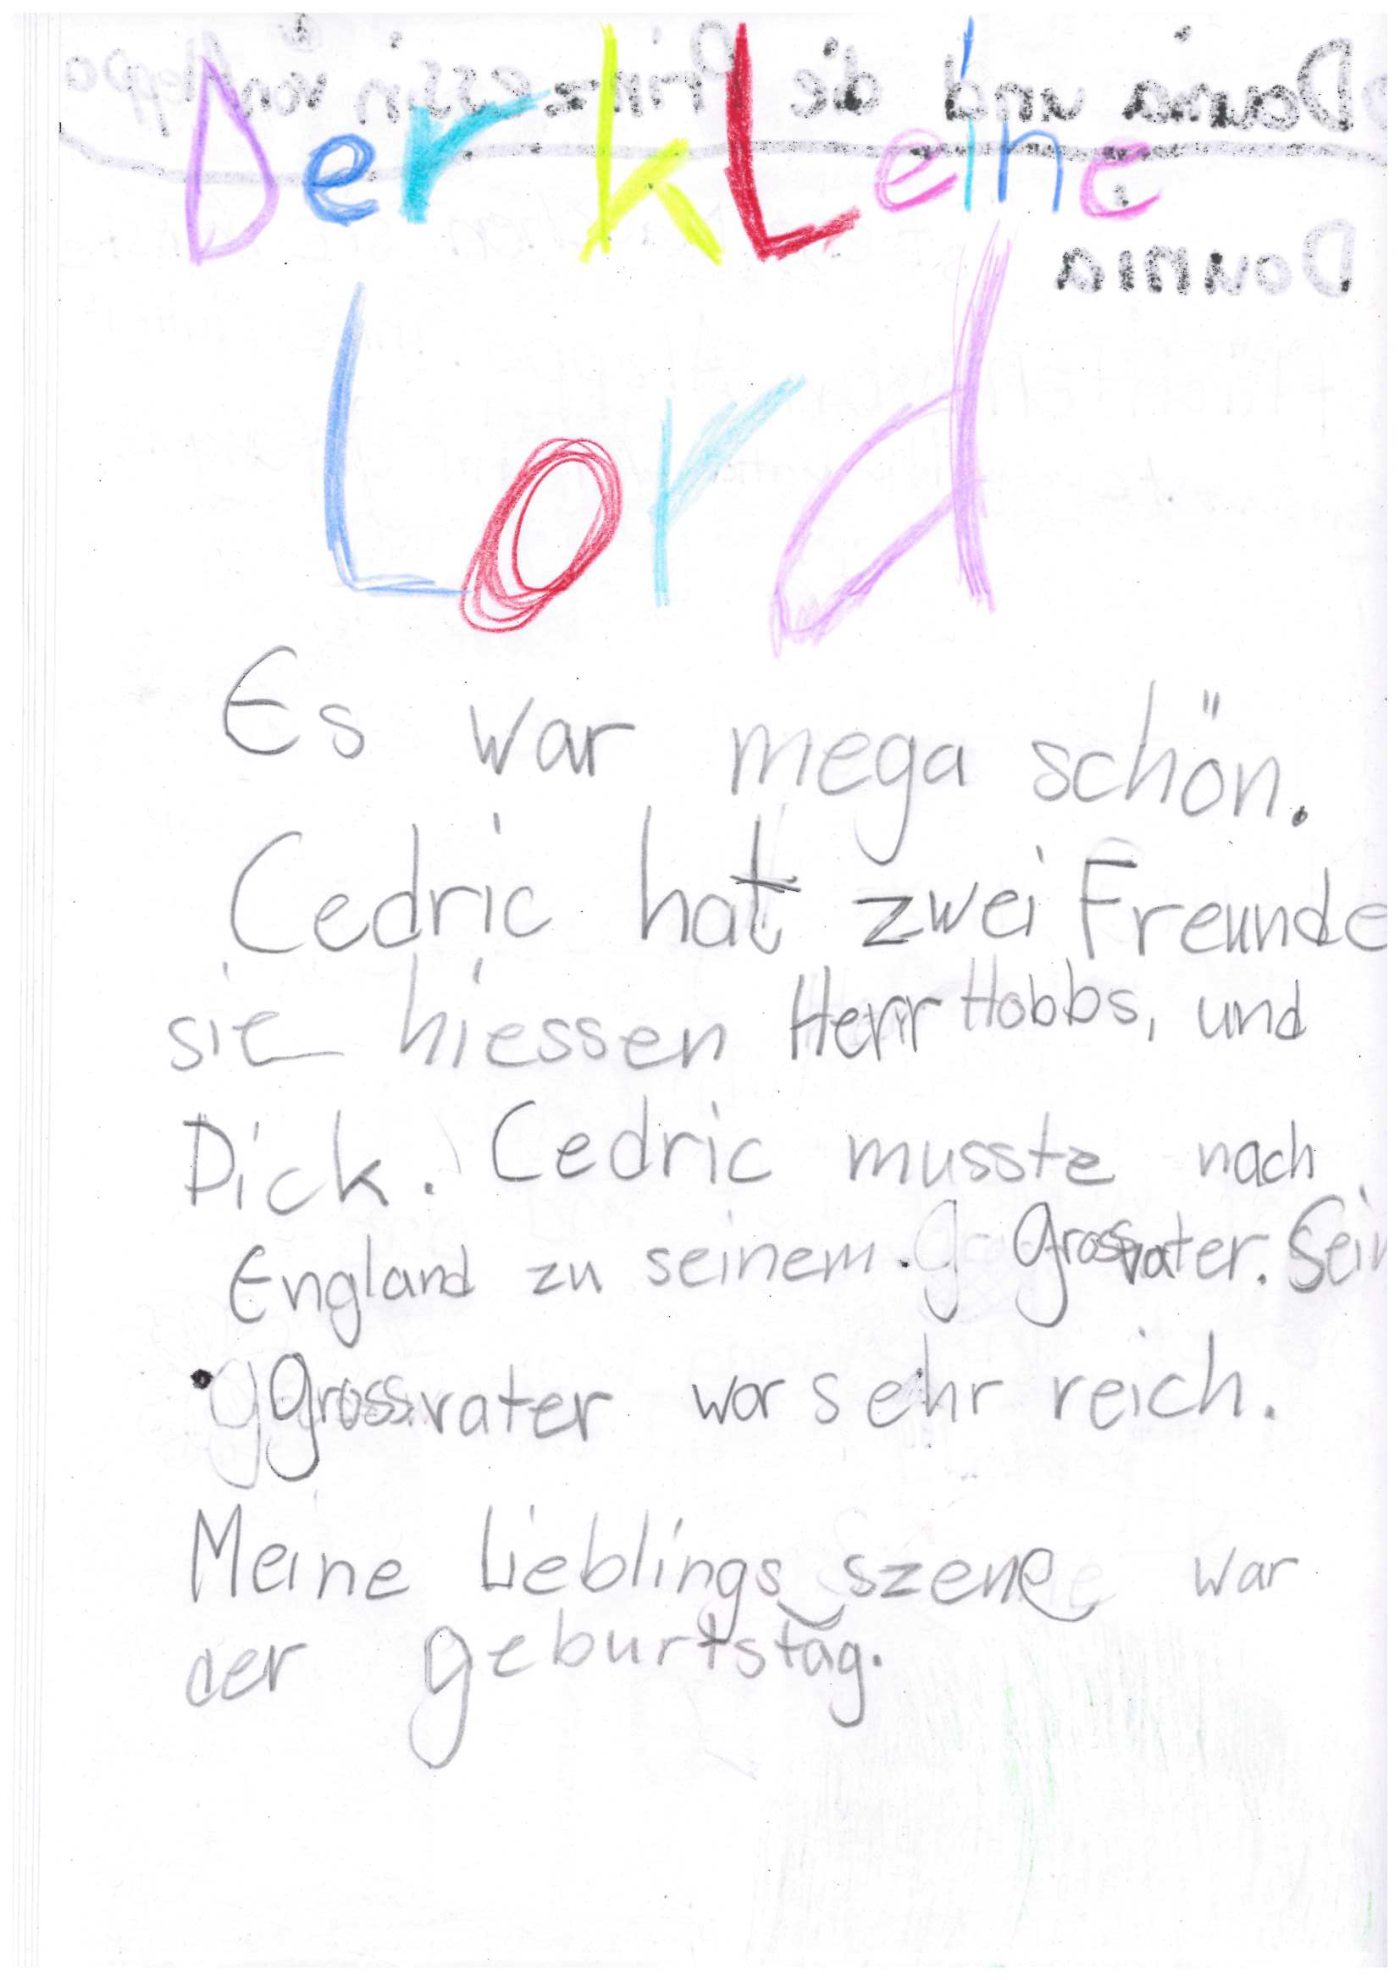 Der kLeine
Lord
Es war mega schön.
Cedric hat zwei Freunde
sie hiessen Herr Hobbs, und
Dick. Cedric musste nach
England zu seinem. Grossvater. Sein
Grossvater war sehr reich.
Meine Lieblings szene war
der geburtstag.
Dounia und die Prinzessin von Aleppo
Dounia